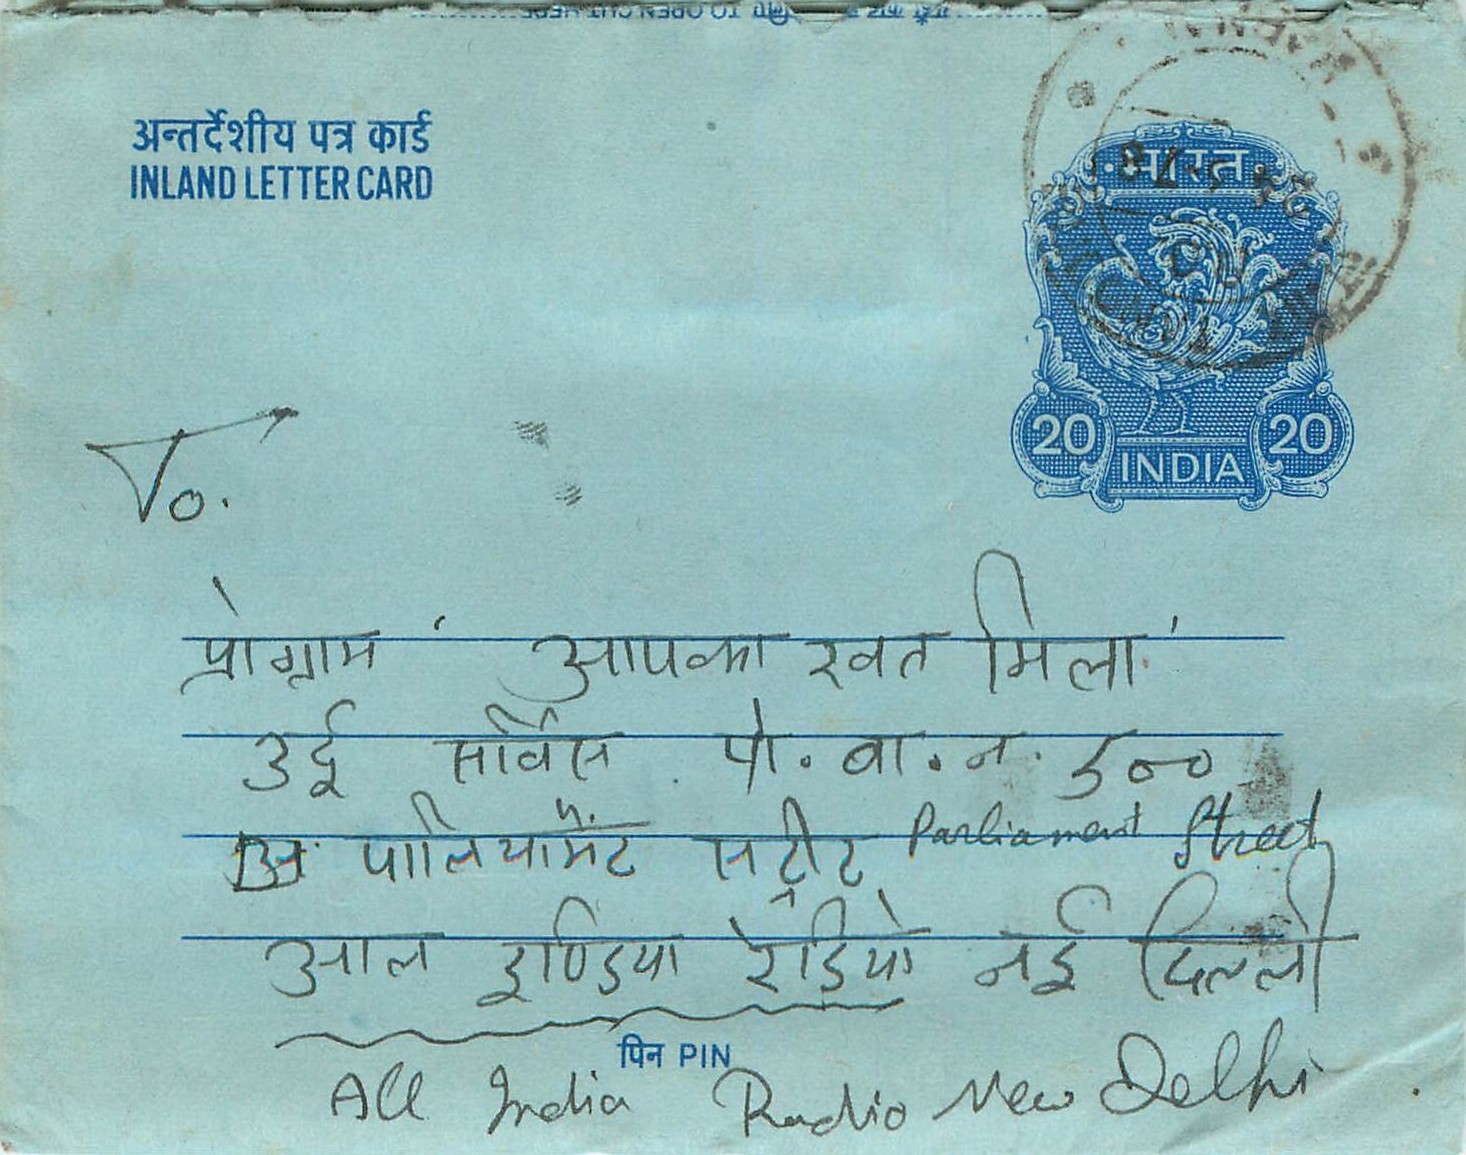 यहाँ काट कर खोलिए TO OPEN CUT HERE
अन्तर्देशीय पत्र कार्ड
INLAND LETTER CARD
भारत
20 20
INDIA
To.
प्रोग्राम ' आपका खत मिला '
उर्दू सर्विस . पो. बा. न. 500
पार्लियामेंट सट्रीट Parliament Street
आल इण्डिया रेडियो नई दिल्ली
पिन PIN
All India Radio New Delhi